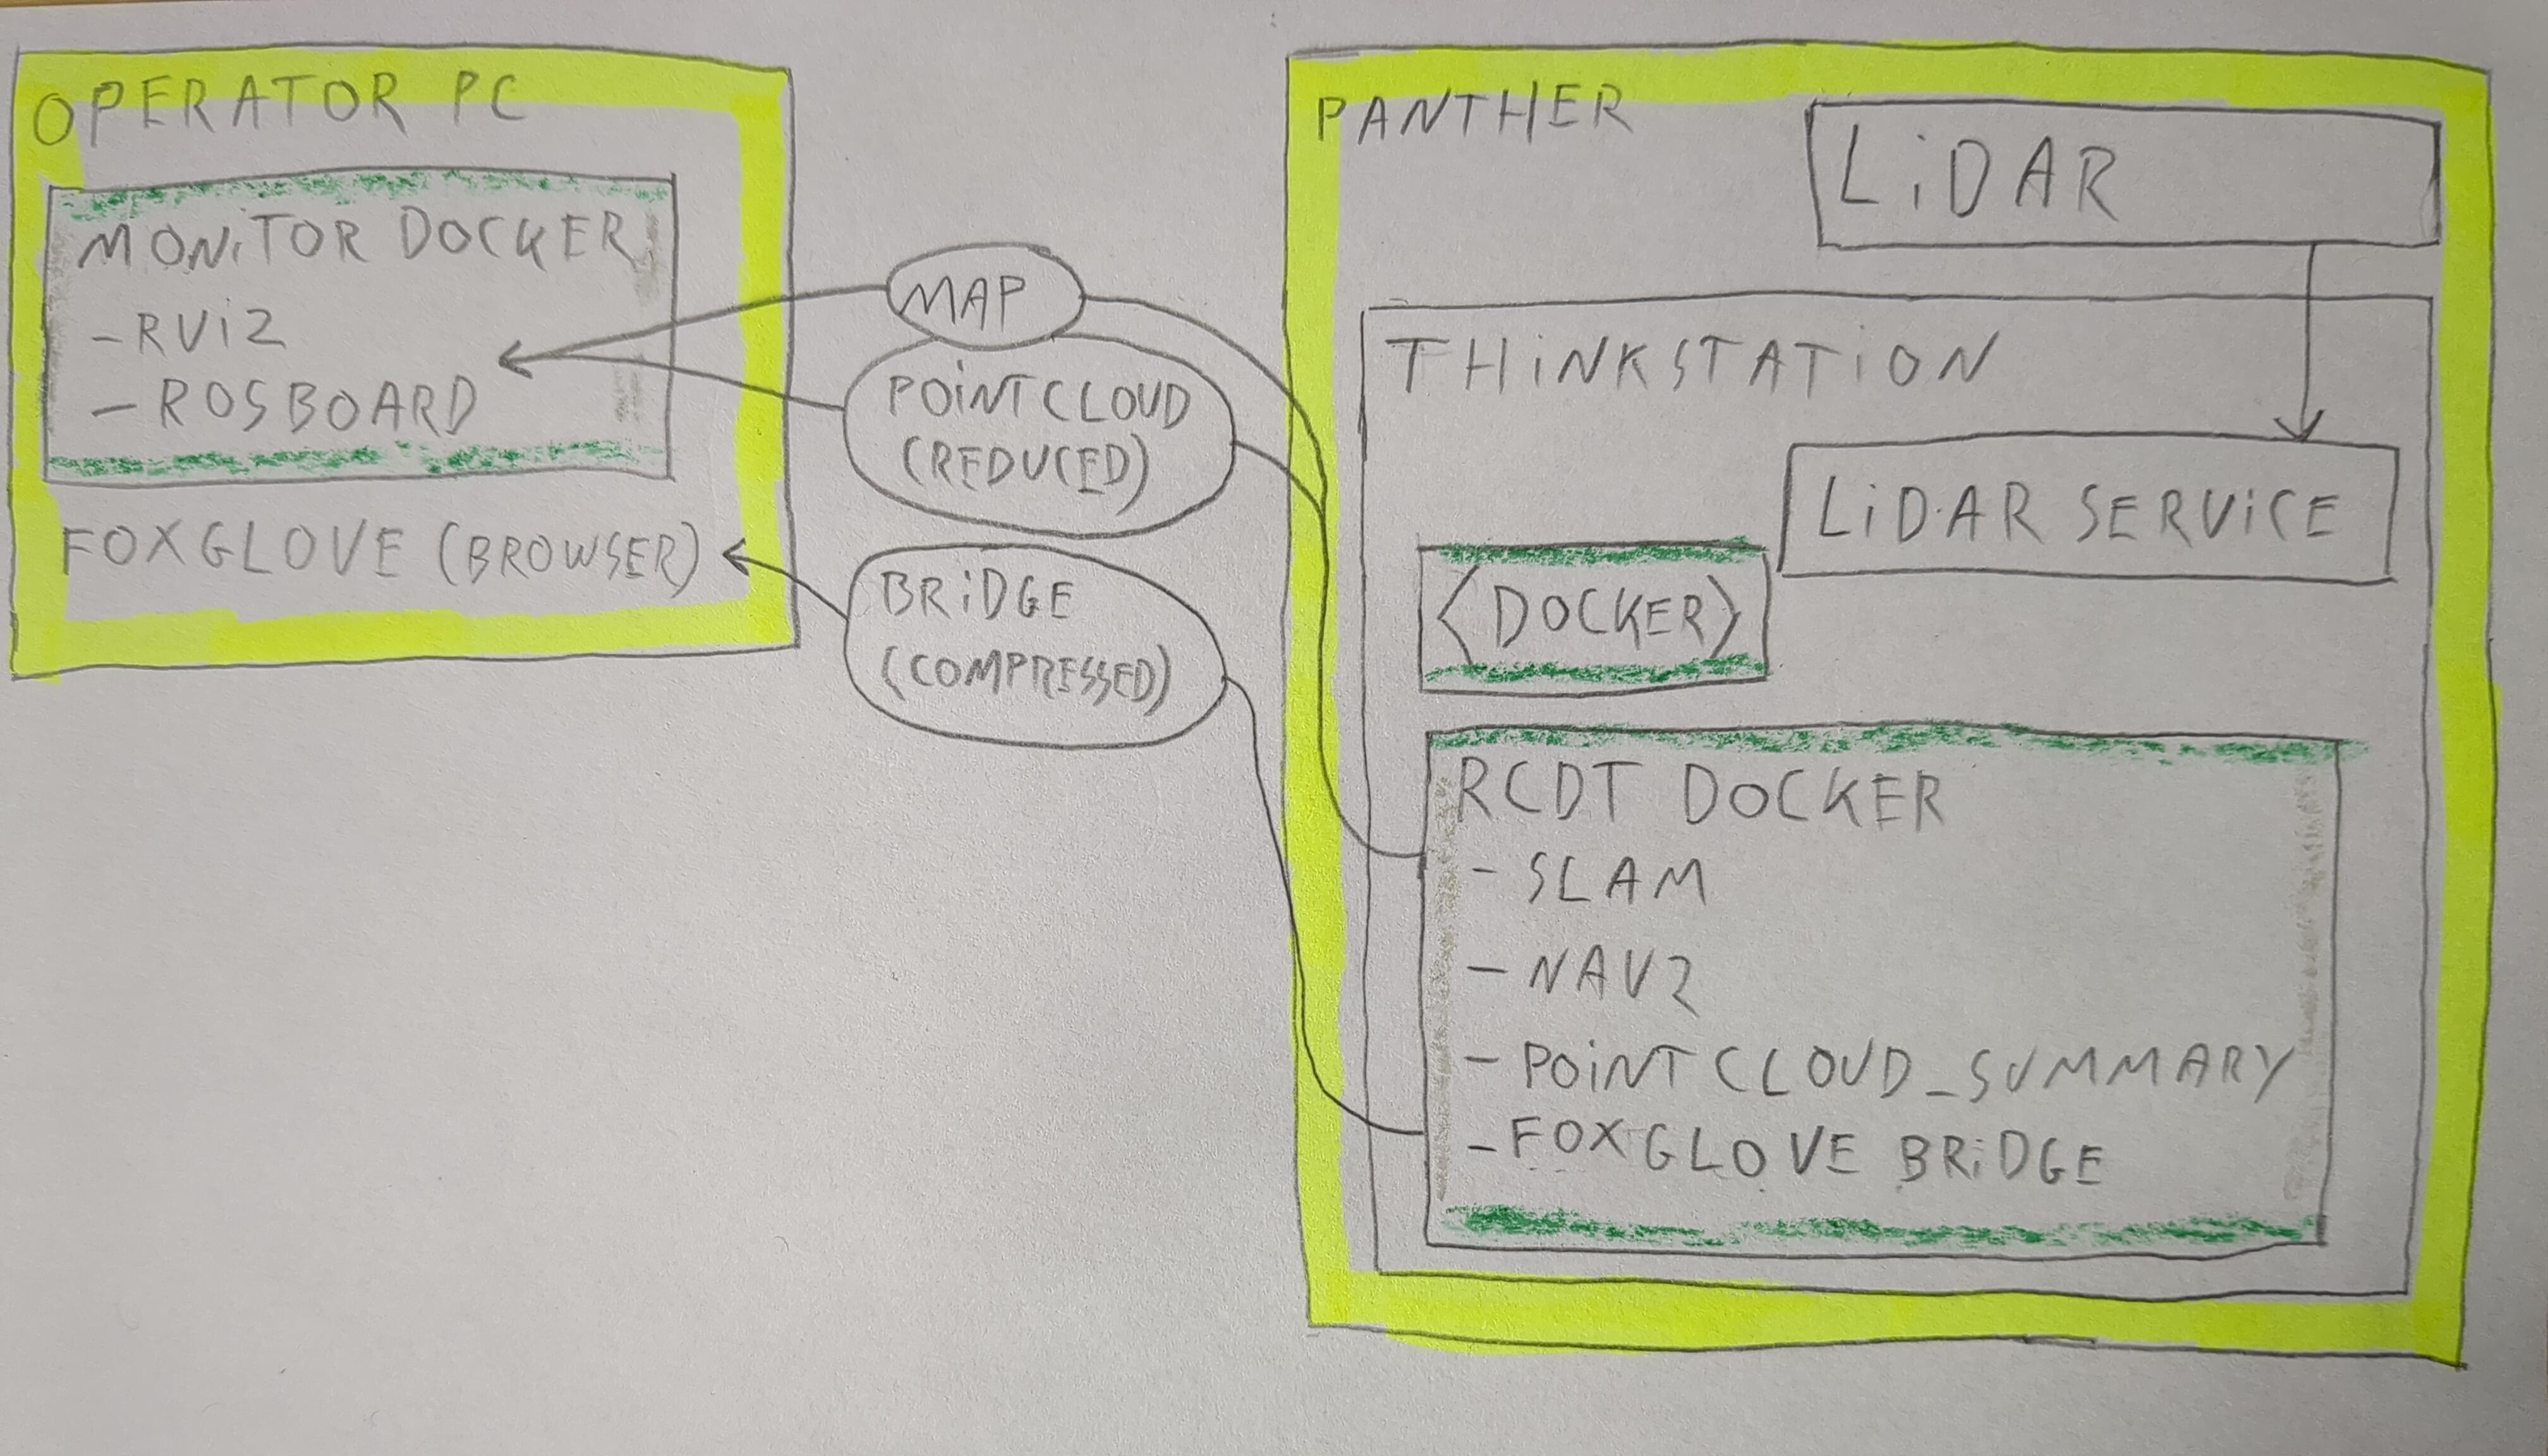 OPERATOR PC
MONiTOR DOCKER
- RViZ
- ROSBOARD
FOXGLOVE (BROWSER)
MAP
POiNTCLOUD
(REDUCED)
BRiDGE
(COMPRESSED)
PANTHER
LiDAR
THiNKSTATiON
LiDAR SERViCE
<DOCKER>
RCDT DOCKER
- SLAM
- NAV2
- POiNTCLOUD_SUMMARY
- FOXGLOVE BRiDGE